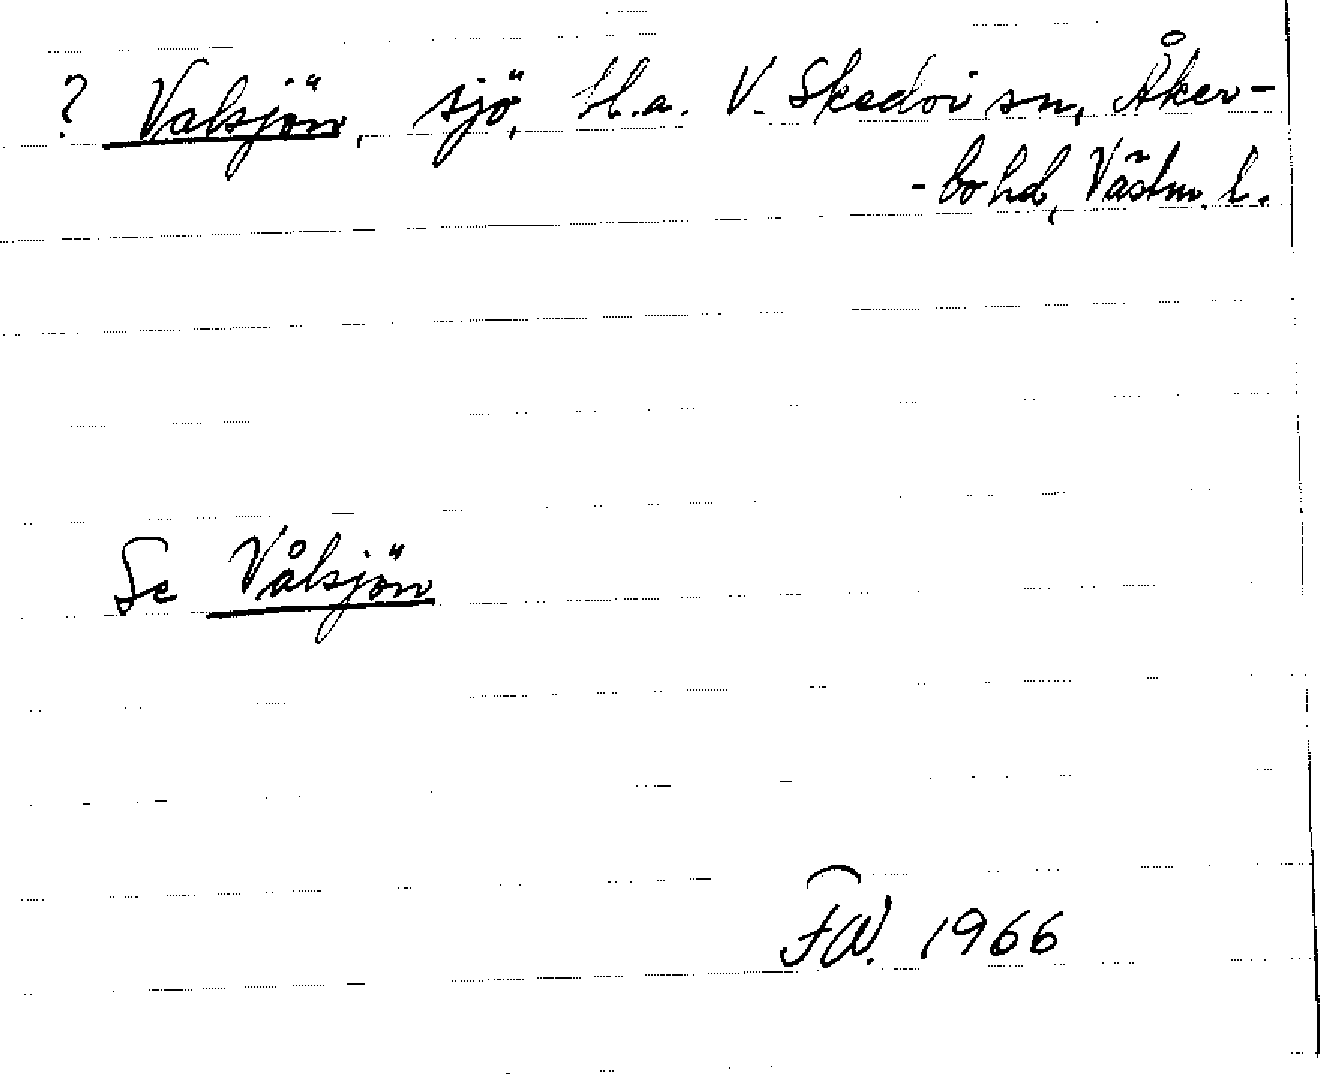 ? Valsjön, sjö, bl.a. V. Skedvi sn, Åker-
-bo hd, Västm. l.
Se Vålsjön
1966